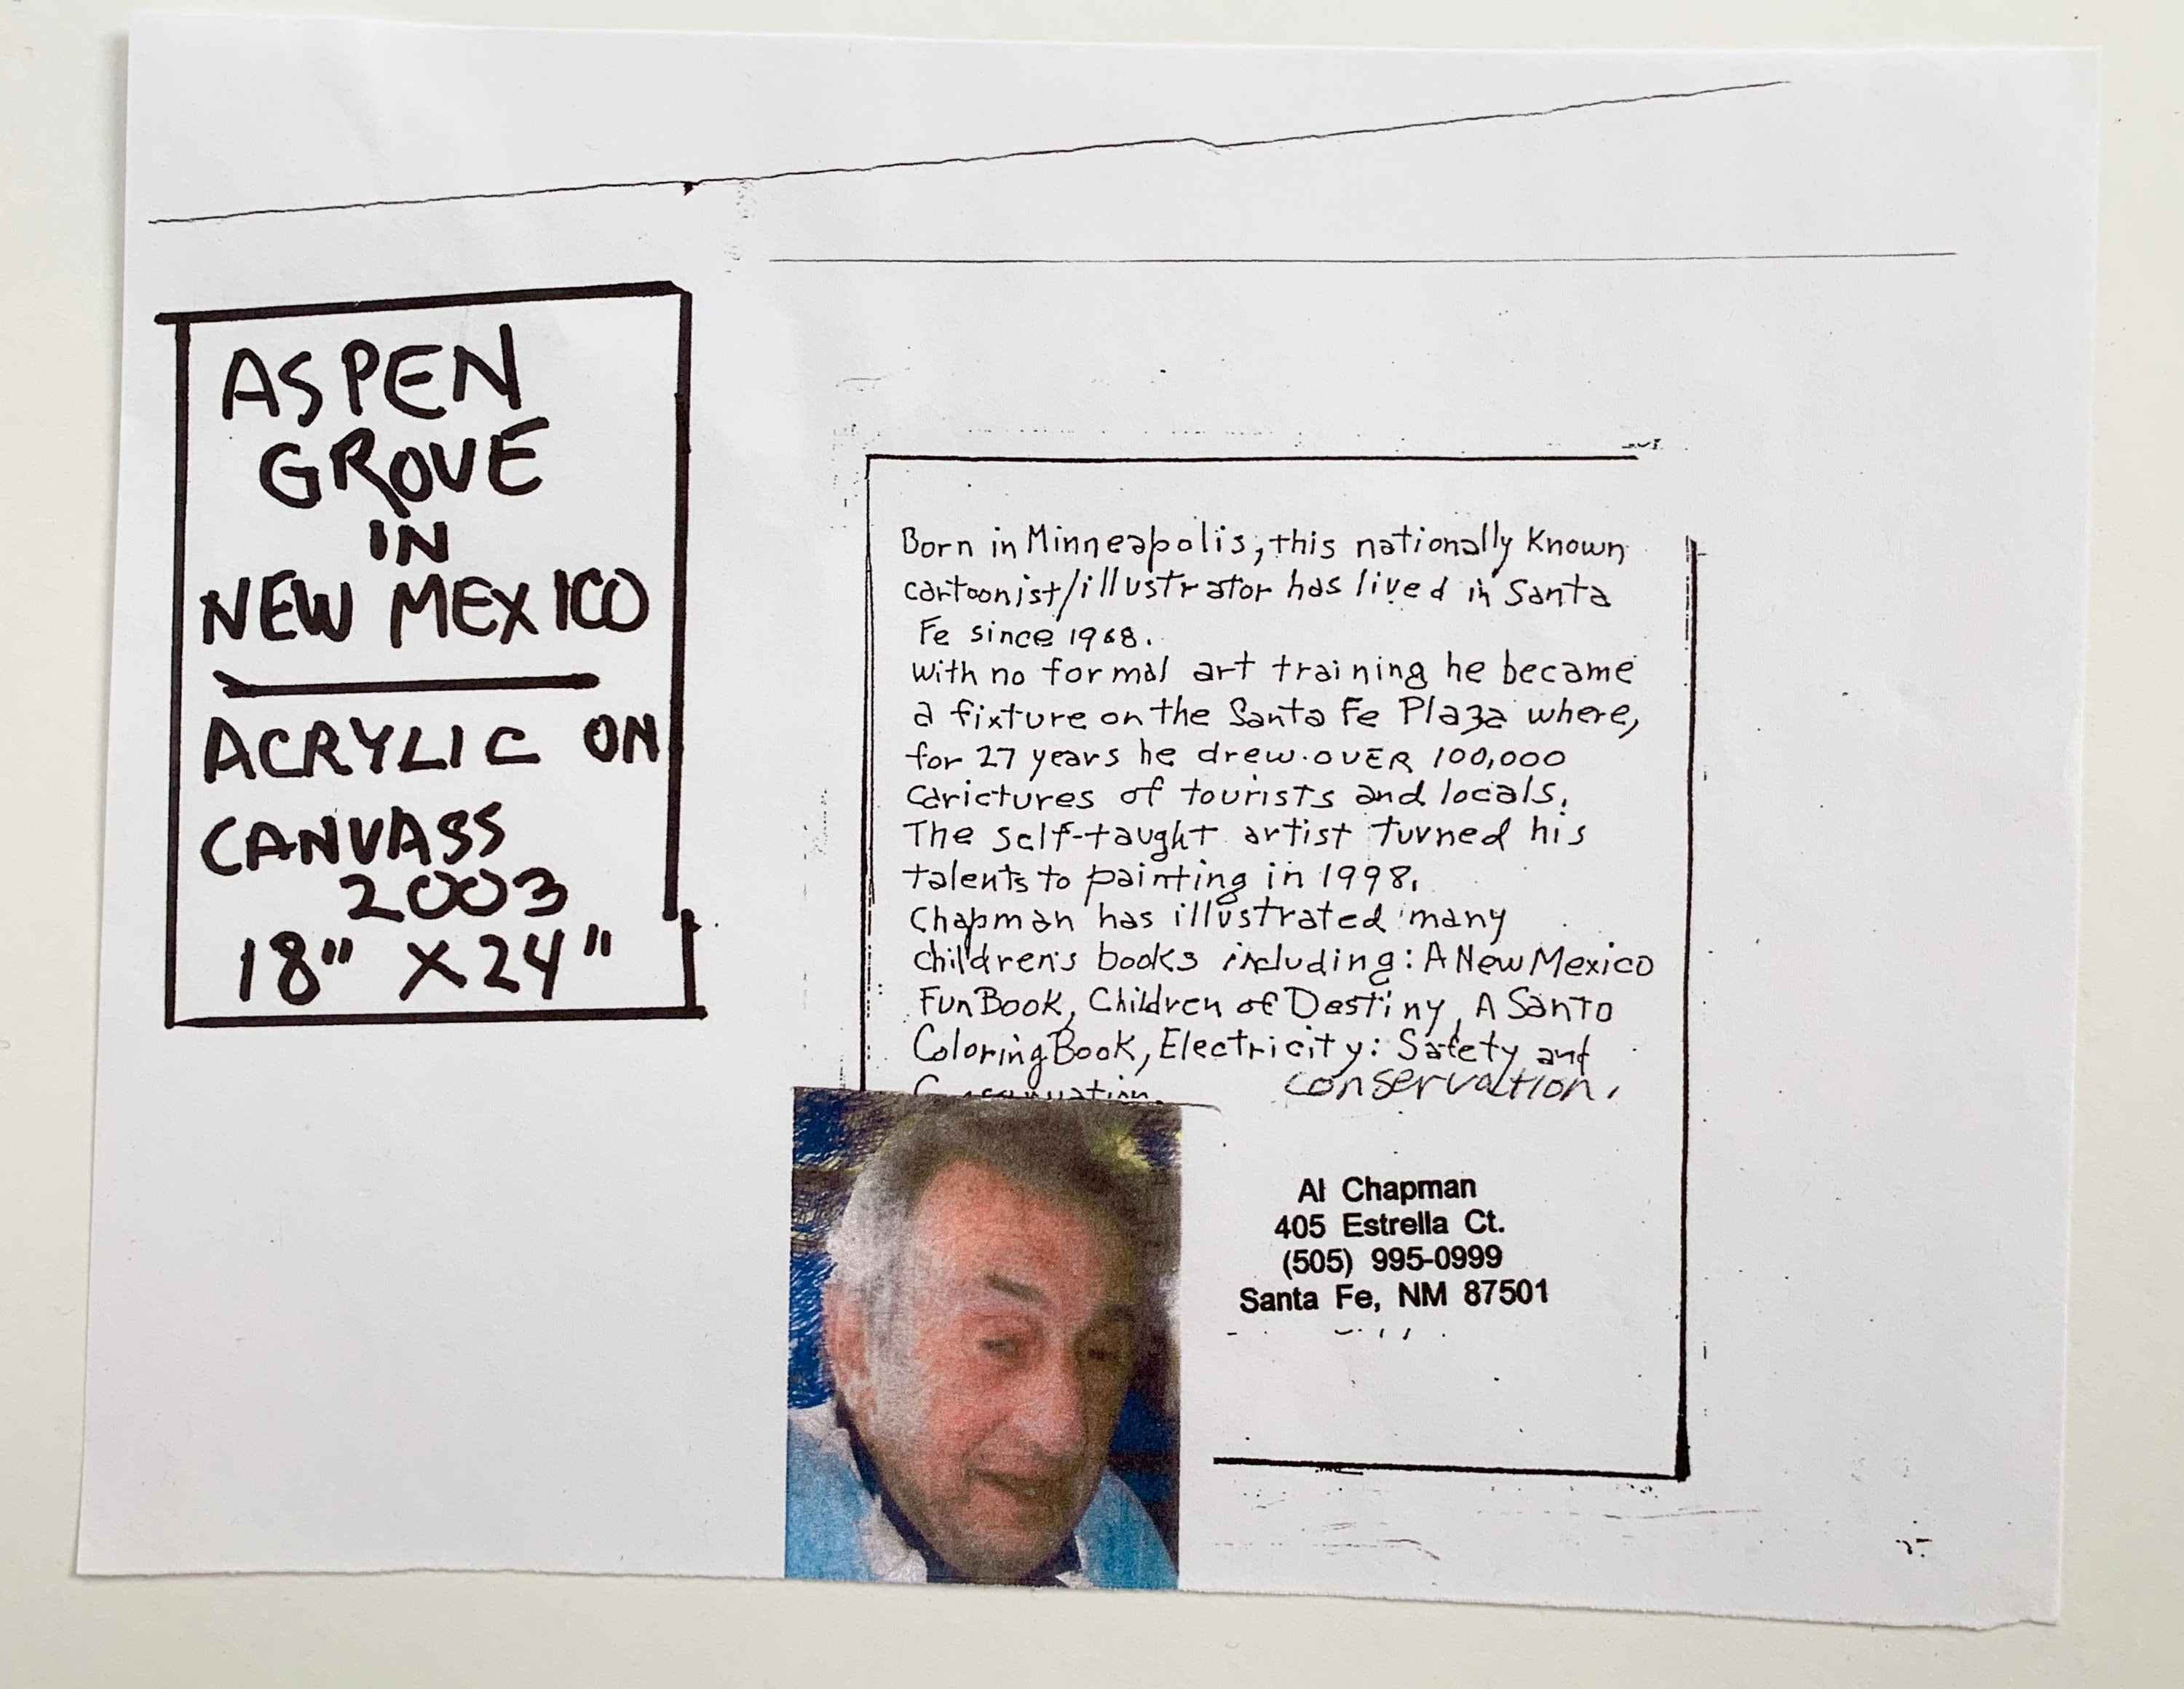 ASPEN
GROVE
IN
NEW MEXICO
ACRYLIC ON
CANVASS
2003
18" X 24"
Born in Minneapolis, this nationally Known
cartoonist/illustrator has lived in Santa
Fe since 1968.
With no formal art training he became
a fixture on the Santa Fe Plaza where,
for 27 years he drew OVER 100,000
carictures of tourists and locals.
The self-taught artist turned his
talents to painting in 1998.
Chapman has illustrated many
children's books including: A New Mexico
Fun Book, Children of Destiny, A Santo
Coloring Book, Electricity: Safety and
conservation.
Al Chapman
405 Estrella Ct.
(505) 995-0999
Santa Fe, NM 87501